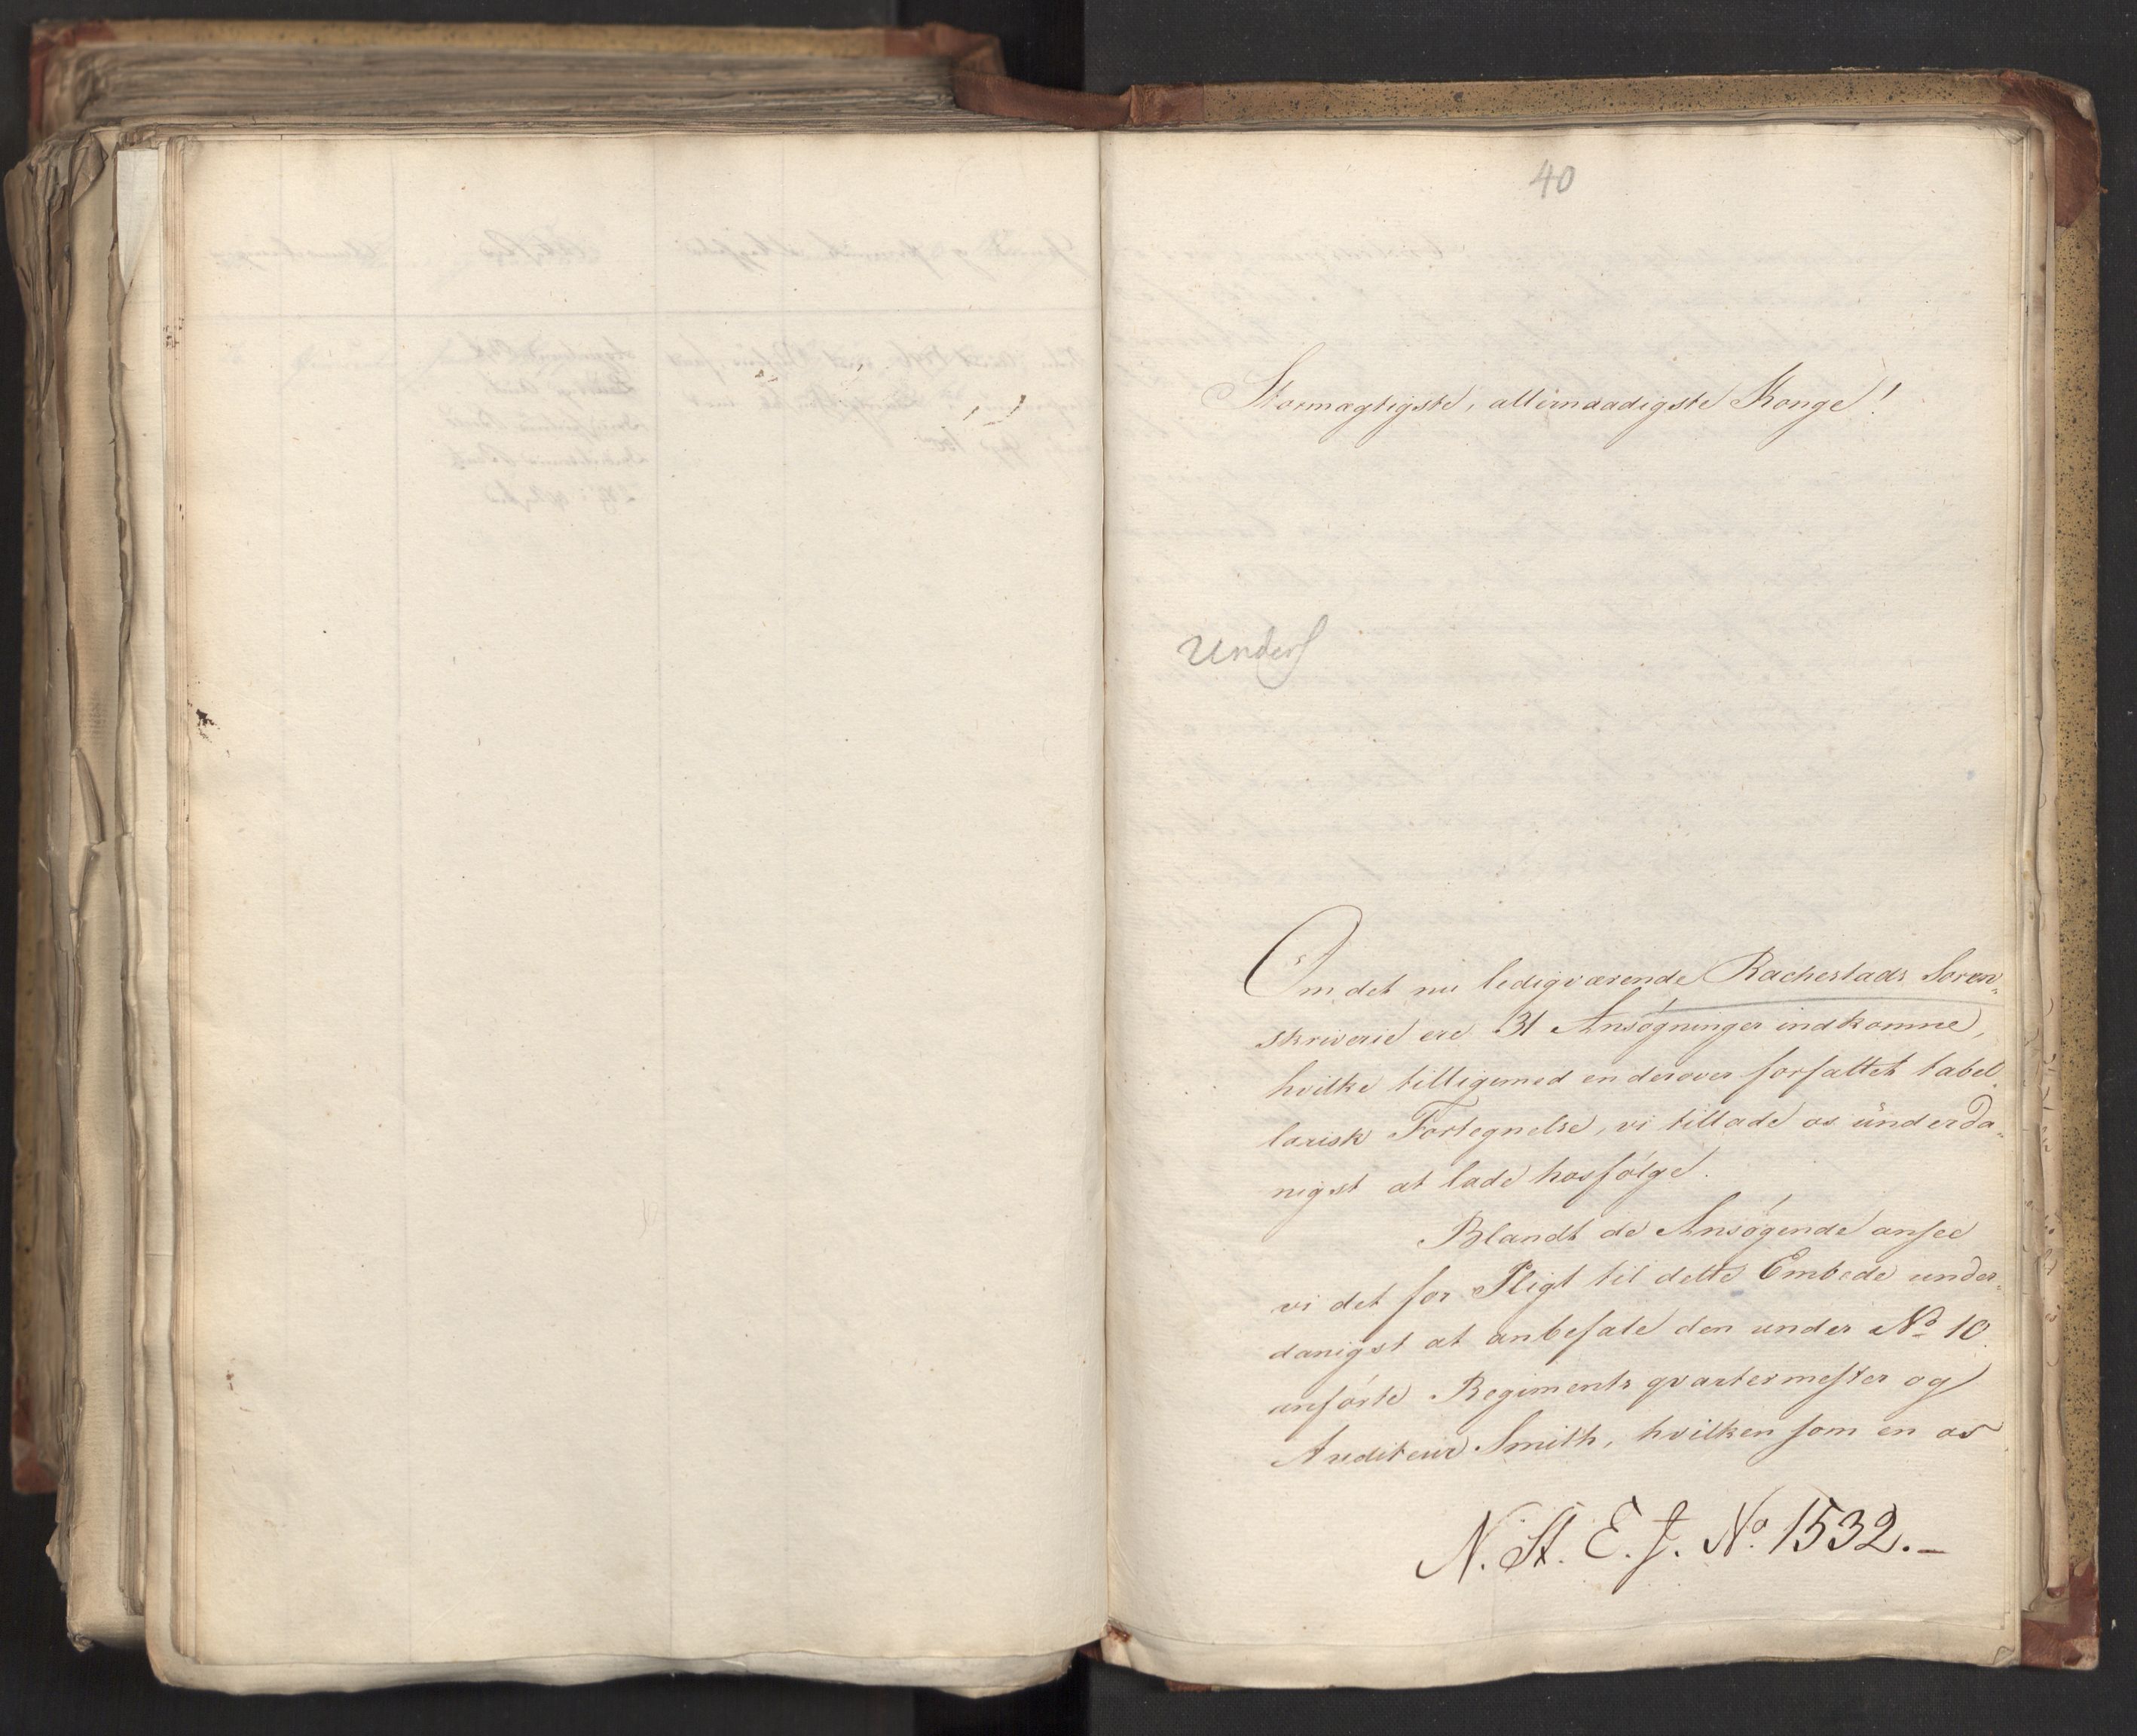 40
Stormægtigste, allernaadigste Konge!
Om det nu ledigværende Rachestads Soren-
skriverie ere 31 Ansøgninger indkomne,
hvilke tilligemed en derover forfattet tabel-
larisk Fortegnelse, vi tillade os underda-
nigst at lade hosfølge.
Blandt de Ansøgende ansee
vi det for Pligt til dette Embede under-
danigst at anbefale den under No 10
anførte Regimentsqvartermester og
Auditeur Smith, hvilken som en af
N. St. E. J. No 1532.-